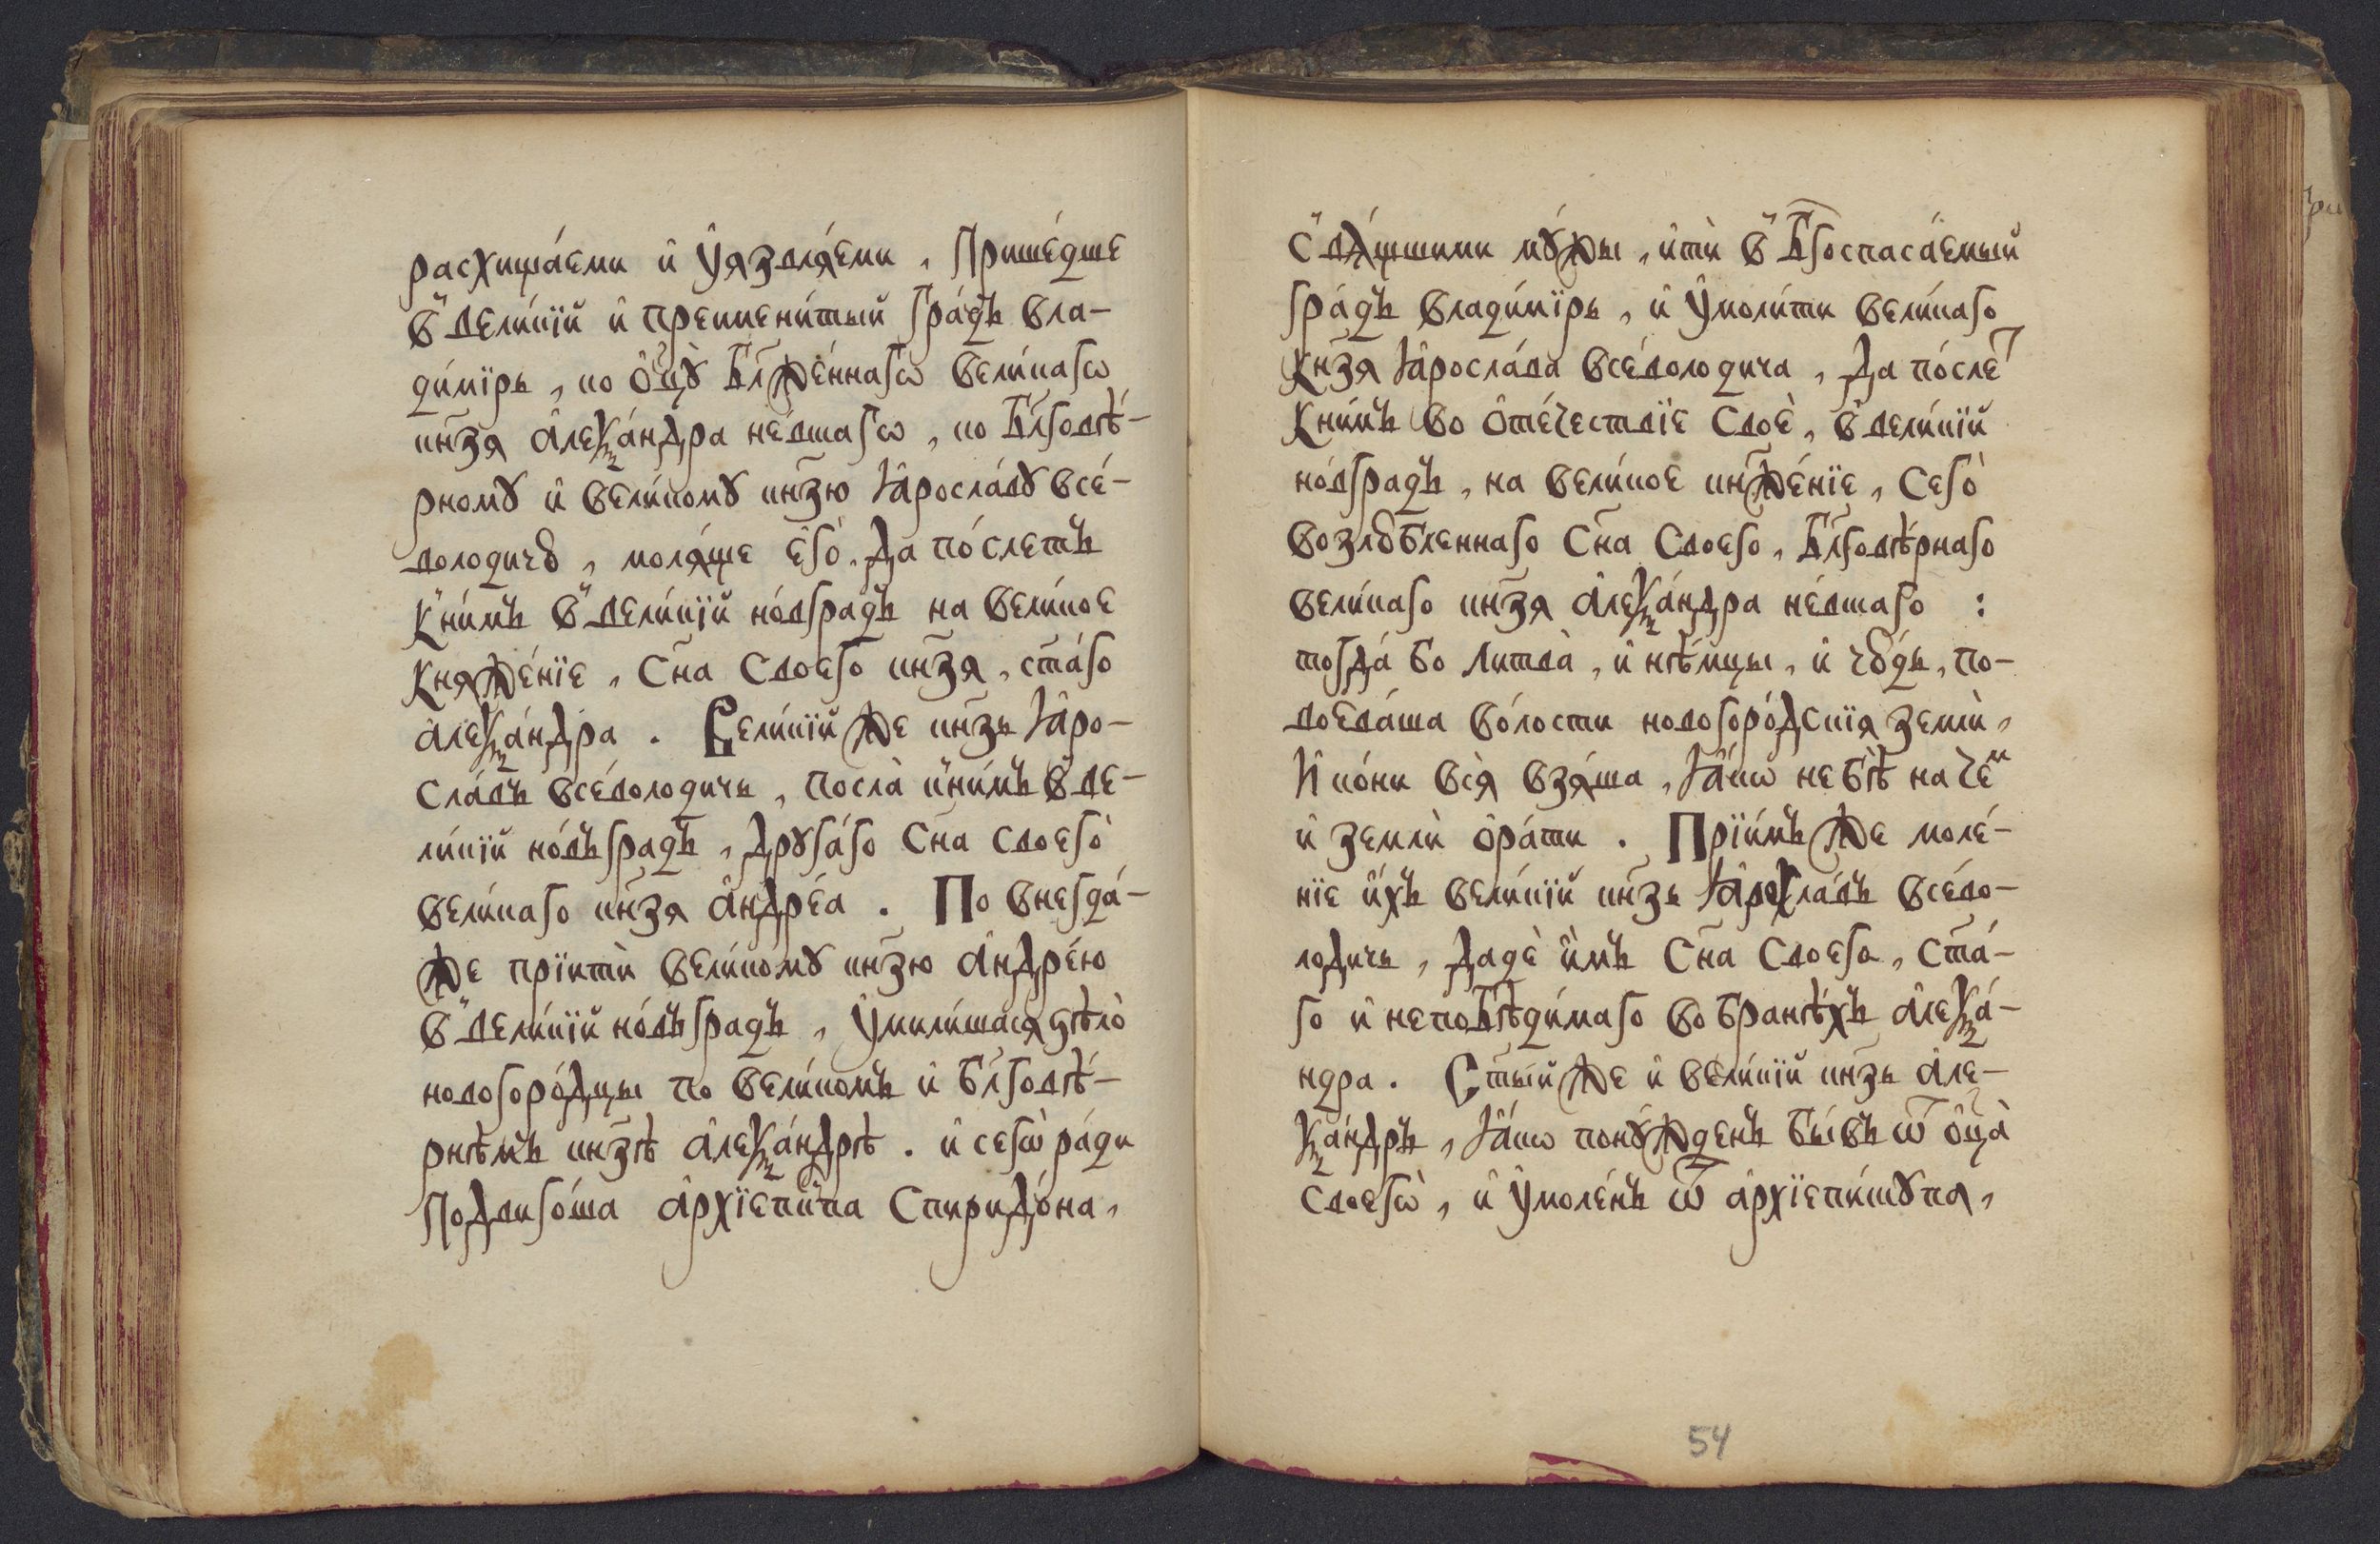 расхища́еми и҆ ᲂу҆язвлѧ́еми , Прише́дше
в̾ вели́кїй и҆ преимени́тый гра́дъ Вла-
ди́мїрь , ко ѻ҆ц҃ꙋ̀ Бл҃же́ннагѡ вели́кагѡ
кн҃зѧ а҆леѯа́ндра не́вшагѡ , ко Бл҃говѣ́-
рномꙋ и҆ вели́комꙋ кн҃зю Ꙗ҆росла́вꙋ все́-
володичꙋ , молѧ́ще є҆го̀. Да по́слетъ
к̾ни́мъ в̾ вели́кїй но́вградъ на вели́кое
кнѧже́нїе , Сн҃а Своего кн҃зѧ , ст҃а́го
а҆леѯа́ндра . Вели́кїй же кн҃зь Ꙗ҆ро-
сла́въ все́володичь , посла̀ к̾ни́мъ в̾ ве-
ли́кїй но́въградъ , дрꙋга́го Сн҃а своего̀
вели́каго кн҃зѧ а҆ндре́а . По внегда́-
же прїитѝ вели́комꙋ кн҃зю а҆ндре́ю
в̾ вели́кїй но́въградъ , ᲂу҆мили́шасѧ ѕѣло̀
новогоро́дцы по вели́комъ и҆ бл҃говѣ́-
рнѣмъ кн҃зѣ а҆леѯа́ндрѣ . и҆ сегѡ̀ ра́ди
Подвиго́ша а҆рхїепⷭ҇кпа Спиридо́на ,
С̾ вѧ́щшими мꙋ́жы , и҆тѝ в̾ Бг҃оспаса́емый
гра́дъ Влади́мїрь , и҆ ᲂу҆моли́ти вели́каго
Кн҃зѧ Ꙗ҆росла́ва все́володича , Да по́слеⷮ
Кни́мъ во ѻ҆те́чествїе Своѐ , в̾ вели́кїй
но́вградъ , на вели́кое кн҃же́нїе , Сего̀
возлю́бленнаго Сн҃а Своего , Бл҃говѣ́рнаго
вели́каго кн҃зѧ а҆леѯа́ндра не́вшаго :
тогда́ бо Литва̀ , и҆ нѣ́мцы , и҆ чꙋ́дь , по-
воева́ша во́лости новогоро́дскїѧ землѝ ,
И҆ ко́ни всѧ̀ взѧ́ша , Ꙗ҆́кѡ не бѣ̀ на чеⷨ
и҆ землѝ ѻ҆ра́ти . Прїи́мъ же моле́-
нїе и҆́хъ вели́кїй кн҃зь Ꙗ҆росла́въ все́во-
лодичь , Дадѐ и҆̀мъ Сн҃а Своего , Ст҃а́-
го и҆ непобѣди́маго во бранѣ́хъ а҆леѯа́-
ндра . Ст҃ый же и҆ вели́кїй кн҃зь а҆ле-
ѯа́ндръ , Ꙗ҆́кѡ понꙋ́жденъ бы́въ ѿ ѻ҆ц҃а̀
своегѡ̀ , и҆ ᲂу҆моле́нъ ѿ а҆рхїепи́скꙋпа ,
54